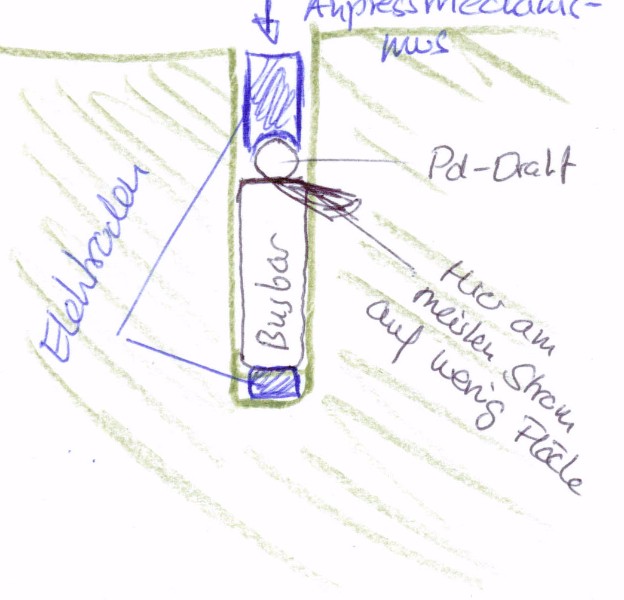 Anpressmechanis-
mus
Pd-Draht
Elektroden
Busbar
Hier am
meisten Strom
auf wenig Fläche